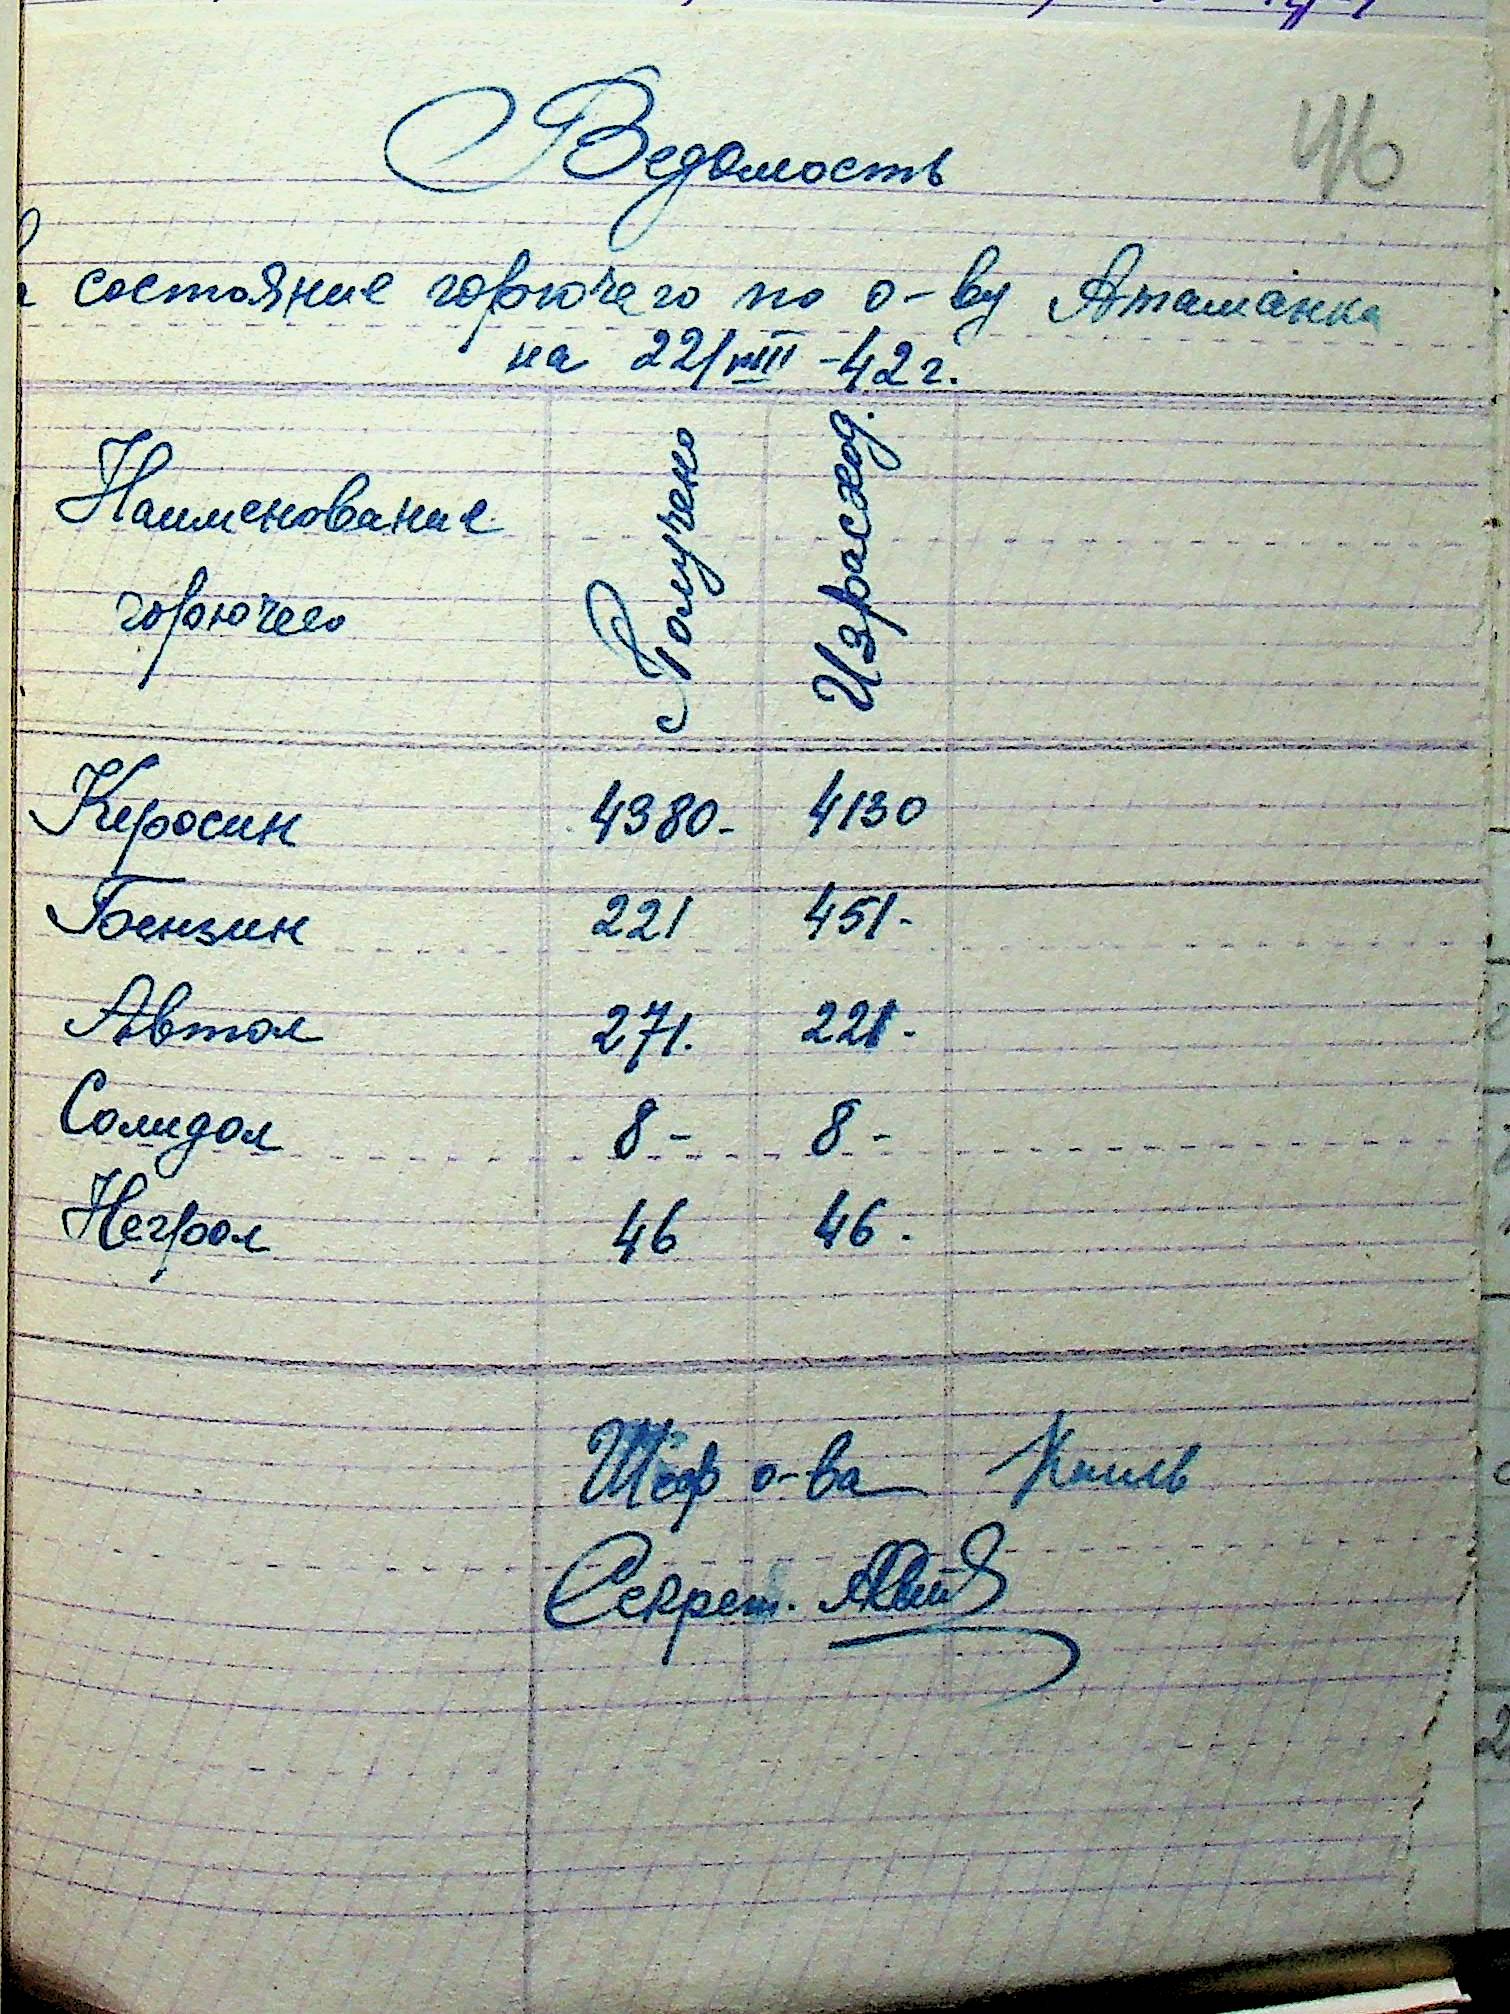 46
Ведомость
на состояние горючего по о-ву Атаманка
на 22/VIII-42 г.
Наименование горючего Получено Израсход.
Керосин 4380- 4130
Бензин 221 451-
Автол 271. 221-
Солидол 8- 8-
Негрол 46 46.
Шеф о-ва
Секрет.